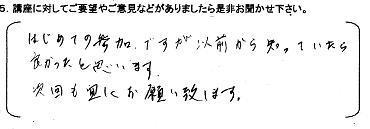 5. 講座に対してご要望やご意見などがありましたら是非お聞かせ下さい。
はじめての参加ですが以前から知っていたら
良かったと思います。
次回も更にお願い致します。